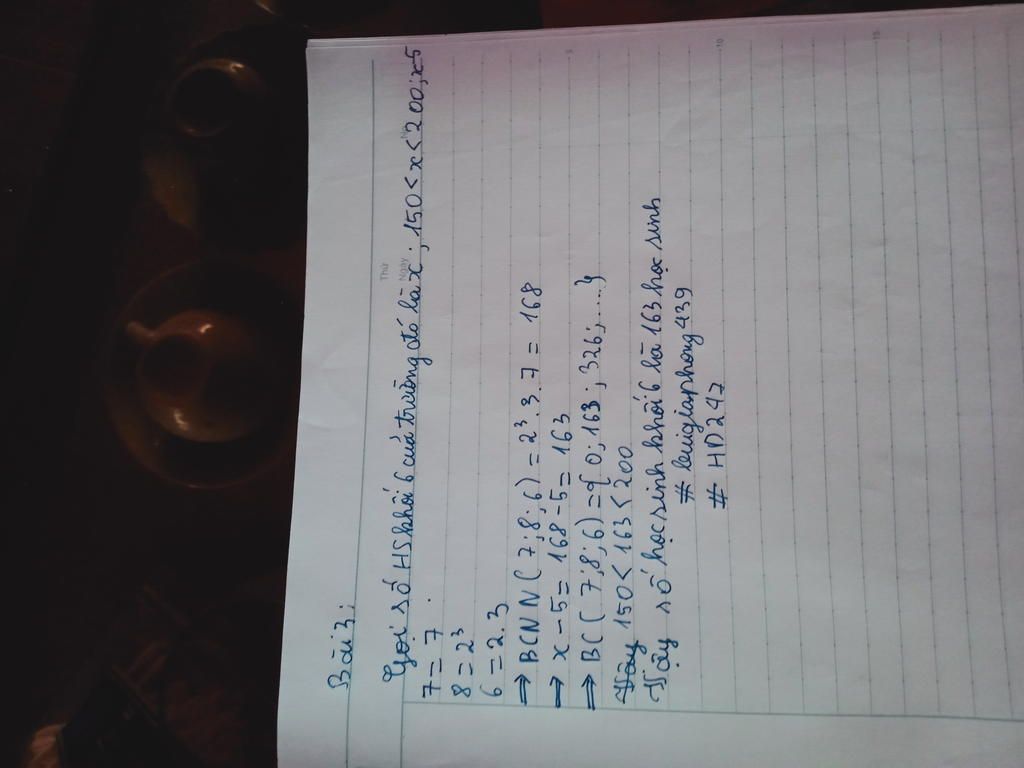 Thứ
Ngày
Bài 3:
Gọi số HS khối 6 của trường đó là x ; 150 < x < 200 ; x-5
7 = 7
8 = 2³
6 = 2.3
⇒ BCNN ( 7 ; 8 ; 6 ) = 2³ . 3 . 7 = 168
⇒ x - 5 = 168 - 5 = 163
⇒ BC ( 7 ; 8 ; 6 ) = { 0 ; 163 ; 326 ; .... }
150 < 163 < 200
Vậy số học sinh khối 6 là 163 học sinh
# leuigiaphong439
# HD247